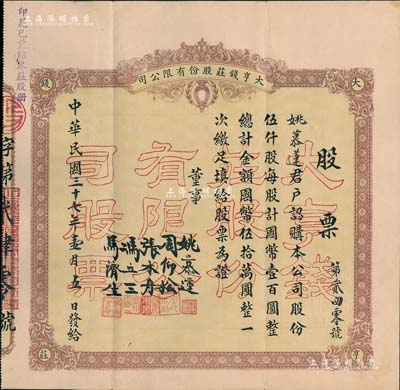 大亨錢莊股份有限公司
大
錢
亨
莊
股票
第貳四零號
姚慕蓮君戶認購本公司股份
伍仟股每股計國幣壹百圓整
總計金額國幣伍拾萬圓整一
次繳足填給股票為證
董事
姚慕蓮
中華民國三十七年壹月五日發給
大亨錢
莊股份
有限公
司股票
字第貳肆零號
上海泓盛拍賣